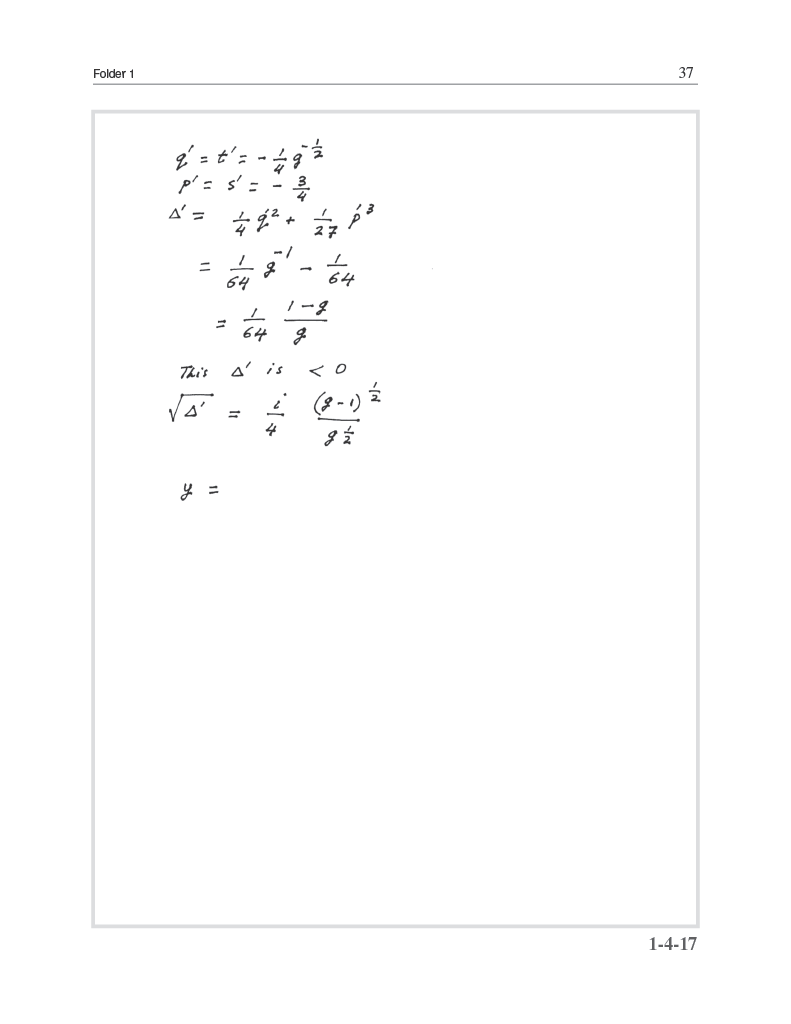 Folder 1 37
q′ = t′ = - 1/4 g^(-1/2)
p′ = s′ = - 3/4
Δ′ = 1/4 q′^2 + 1/27 p′^3
= 1/64 g^(-1) - 1/64
= 1/64 (1-g)/g
This Δ′ is < 0
√Δ′ = i/4 (g-1)^(1/2)/g^(1/2)
y =
1-4-17